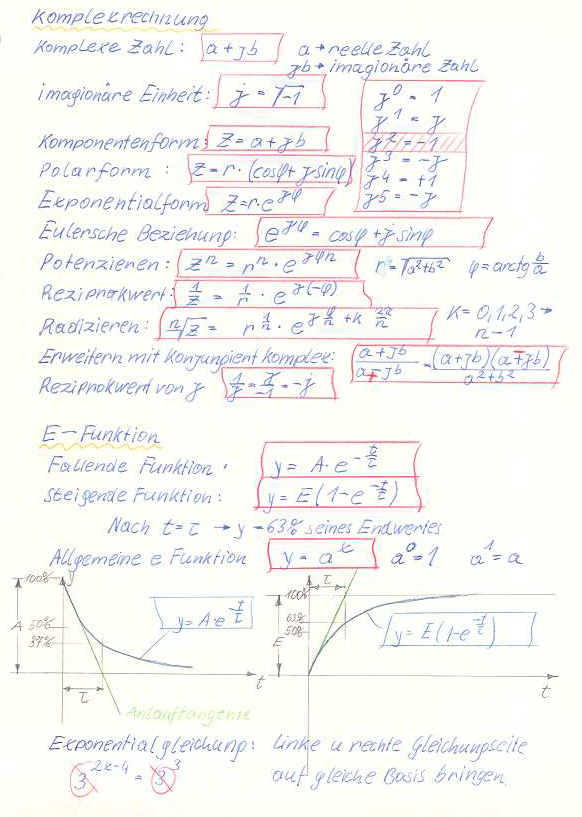 Komplexrechnung
Komplexe Zahl: a+jb a → reelle Zahl
jb → imagionäre Zahl
imagionäre Einheit: j = √-1
j⁰ = 1
j¹ = j
j² = -1
j³ = -j
j⁴ = +1
j⁵ = -j
Komponentenform: Z = a + jb
Polarform : Z = r · (cosφ + j sinφ)
Exponentialform Z = r·e^jφ
Eulersche Beziehung: e^jφ = cosφ + j sinφ
Potenzieren: Zⁿ = rⁿ · e^jφn r = √a²+b² φ = arctg b/a
Reziprokwert: 1/Z = 1/r · e^j(-φ)
Radizieren: n√Z = r^1/n · e^j φ/n + K 2π/n K = 0,1,2,3 → n-1
Erweitern mit Konjungient Komplex: a+jb / a∓jb = (a+jb)(a∓jb) / a²+b²
Reziprokwert von j 1/j = j/-1 = -j
E-Funktion
Fallende Funktion · y = A·e^-t/τ
Steigende Funktion: y = E(1-e^-t/τ)
Nach t = τ → y = 63% seines Endwertes
Allgemeine e Funktion y = a^x a⁰ = 1 a¹ = a
100% y
A 50%
37%
y = A·e^-t/τ
τ t
Anlauftangente
τ
100%
63%
50%
E
y = E(1-e^-t/τ)
t
Exponentialgleichung: Linke u rechte Gleichungseite
3^2x-4 = 3^3 auf gleiche Basis bringen.